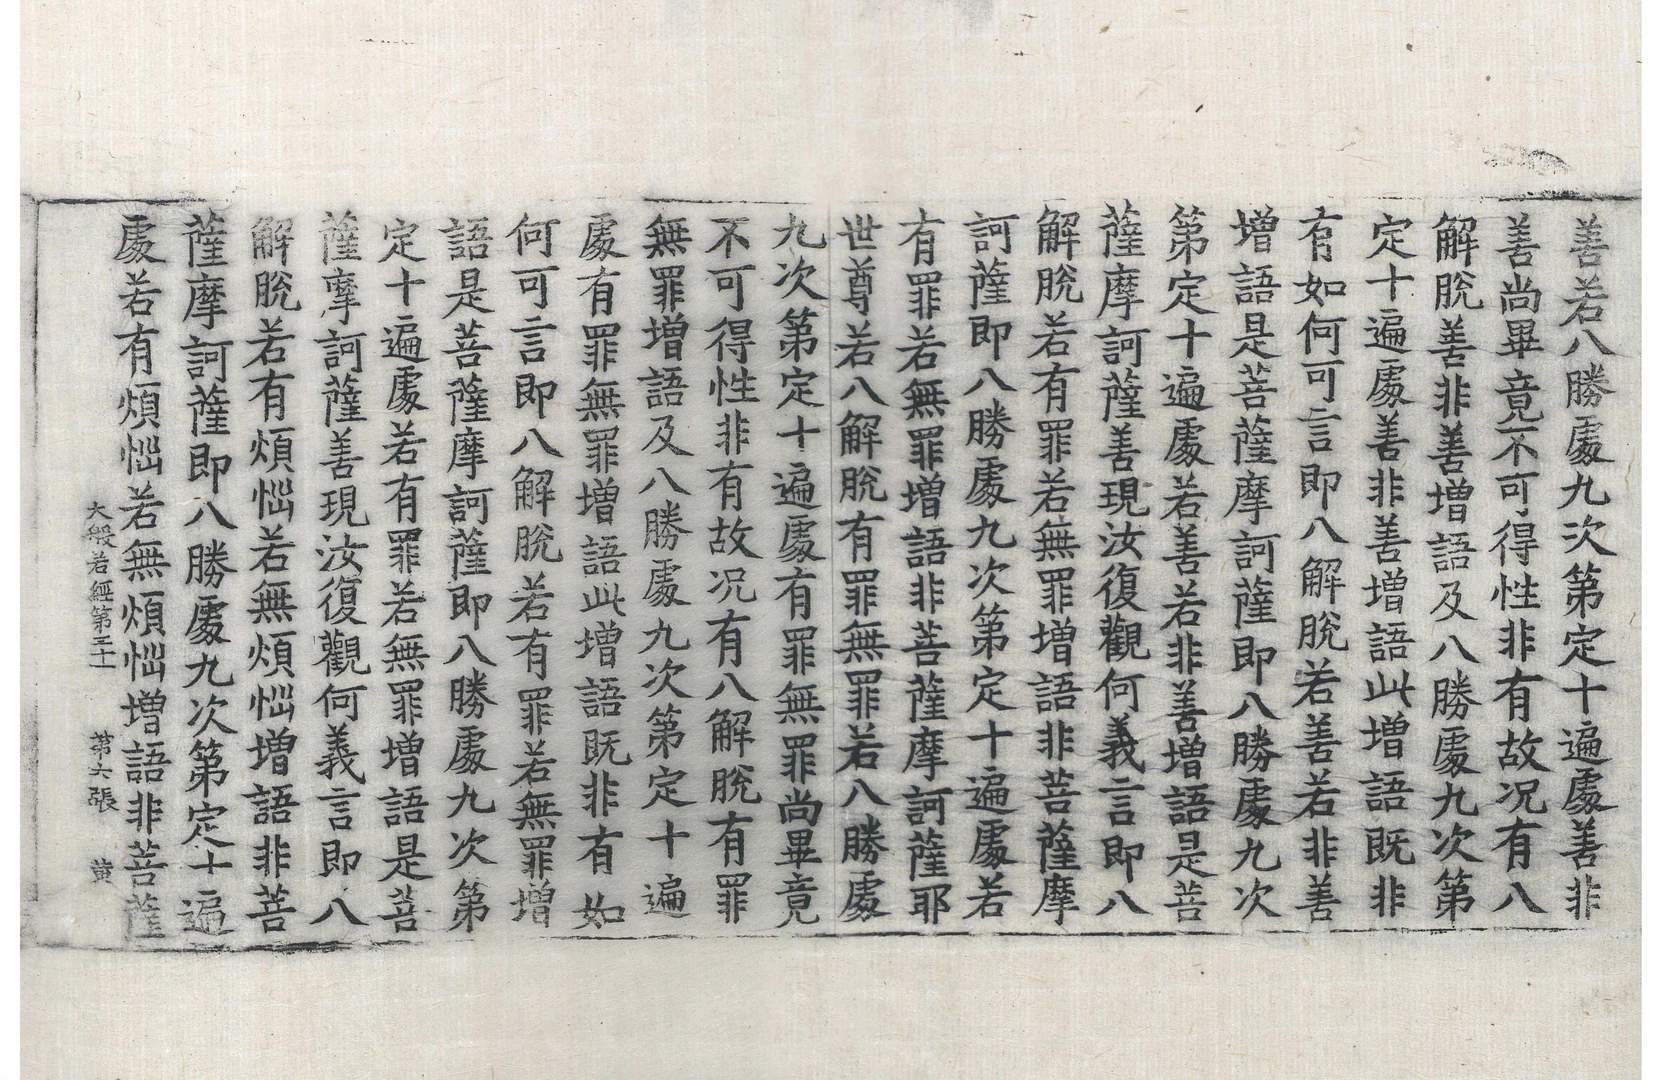 善若八勝處九次第定十遍處善非
善尚畢竟不可得性非有故況有八
解脫善非善增語及八勝處九次第
定十遍處善非善增語此增語既非
有如何可言即八解脫若善若非善
增語是菩薩摩訶薩即八勝處九次
第定十遍處若善若非善增語是菩
薩摩訶薩善現汝復觀何義言即八
解脫若有罪若無罪增語非菩薩摩
訶薩即八勝處九次第定十遍處若
有罪若無罪增語非菩薩摩訶薩耶
世尊若八解脫有罪無罪若八勝處
九次第定十遍處有罪無罪尚畢竟
不可得性非有故況有八解脫有罪
無罪增語及八勝處九次第定十遍
處有罪無罪增語此增語既非有如
何可言即八解脫若有罪若無罪增
語是菩薩摩訶薩即八勝處九次第
定十遍處若有罪若無罪增語是菩
薩摩訶薩善現汝復觀何義言即八
解脫若有煩惱若無煩惱增語非菩
薩摩訶薩即八勝處九次第定十遍
處若有煩惱若無煩惱增語非菩薩
大般若經第二十 第六張 黃